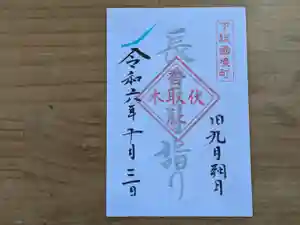 下総國境町
旧九月朔日
長
詣り
伏取木
香
令和六年十月三日